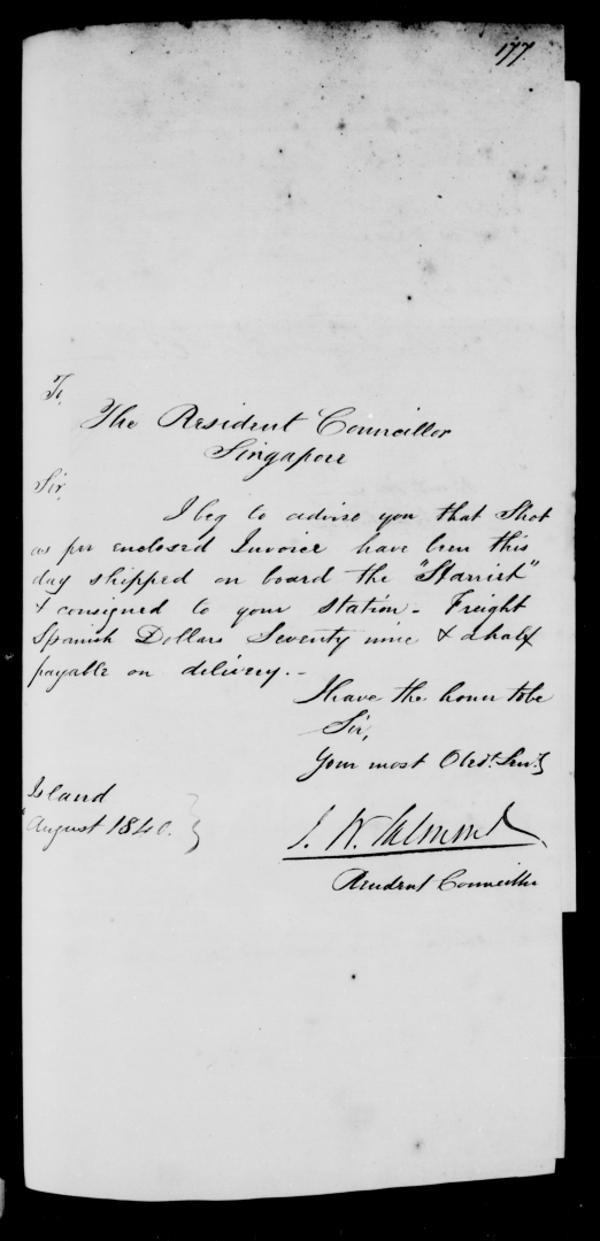 177
To,
The Resident Councillor
Singapore
Sir,
I beg to advise you that Shot
as per enclosed Invoice have been this
day shipped on board the "Harriet"
& consigned to your station - Freight
Spanish Dollars Seventy nine & a half
payable on delivery. -
I have the honor to be
Sir,
Your most Obedt. Servt.
Island
August 1840.
J. W. Salmond
Resident Councillor